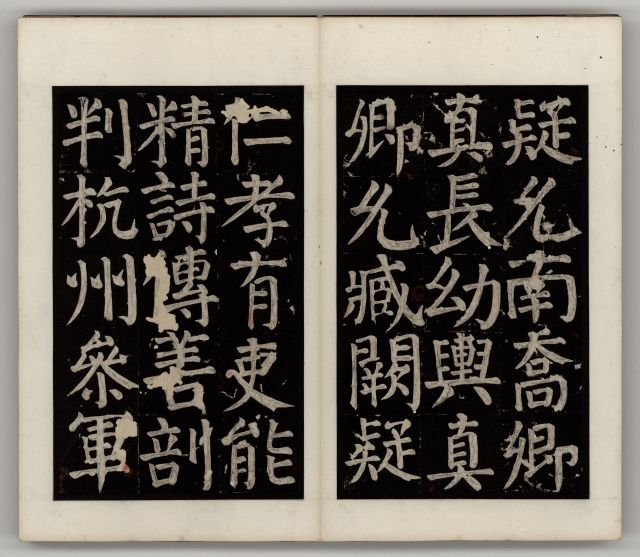 疑允南喬卿
真長幼輿真
卿允臧闕疑
仁孝有吏能
精詩傳善剖
判杭州參軍